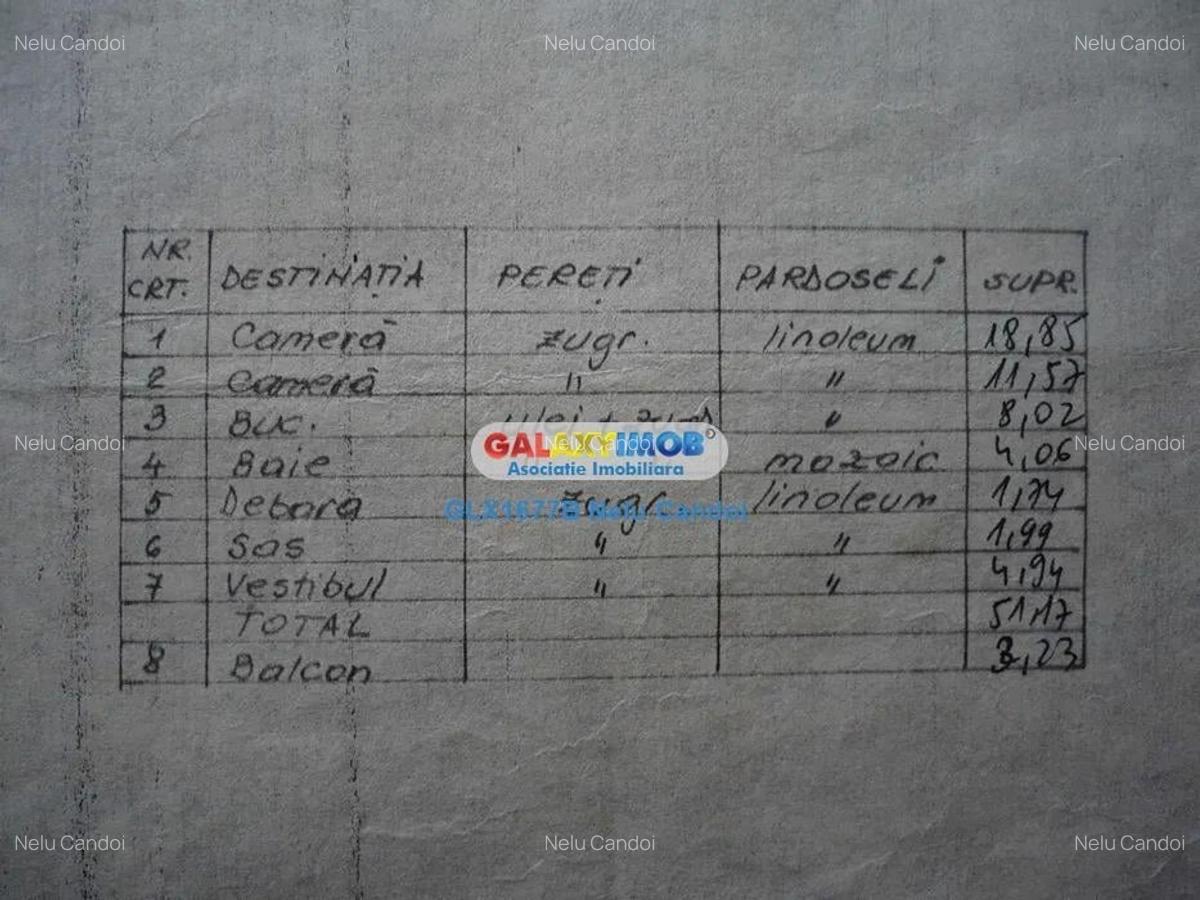 Nelu Candoi Nelu Candoi Nelu Candoi
NR. CRT. DESTINAȚIA PEREȚI PARDOSELI SUPR.
1 Cameră zugr. linoleum 18,85
2 Cameră " " 11,57
3 Buc. " 8,02
Nelu Candoi GALAXYIMOB Nelu Candoi Nelu Candoi
Asociatie Imobiliara
4 Baie mozaic 4,06
5 Debara zugr. linoleum 1,74
GLX1677B Nelu Candoi
6 Sas " " 1,99
7 Vestibul " " 4,94
TOTAL 51,17
8 Balcon 3,23
Nelu Candoi Nelu Candoi Nelu Candoi